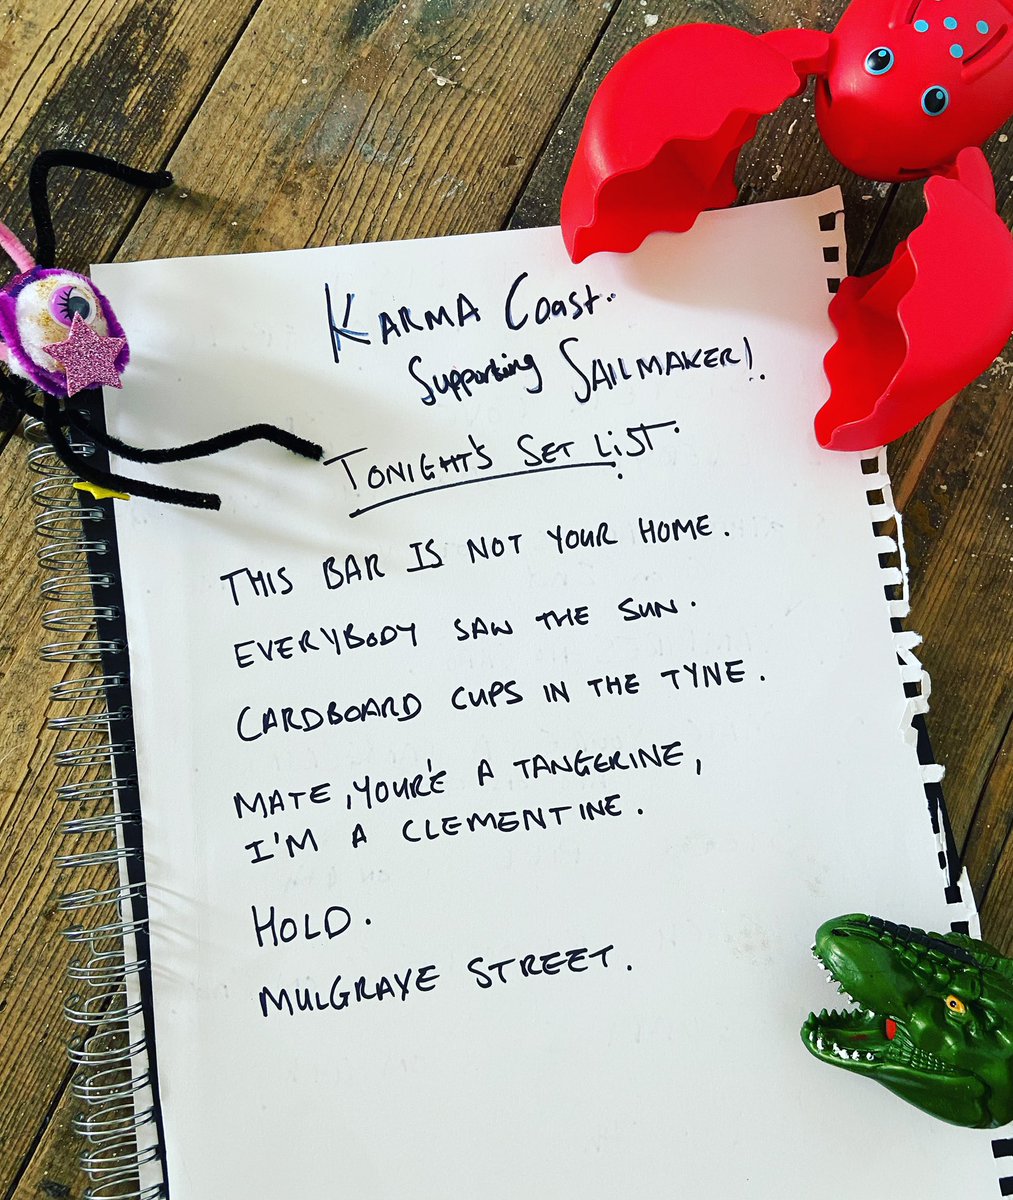 KARMA Coast.
Supporting SAILMAKER!.
TONIGHT'S SET LIST.
THIS BAR IS NOT YOUR HOME.
EVERYBODY SAW THE SUN.
CARDBOARD CUPS IN THE TYNE.
MATE, YOUR'E A TANGERINE,
I'M A CLEMENTINE.
HOLD.
MULGRAVE STREET.